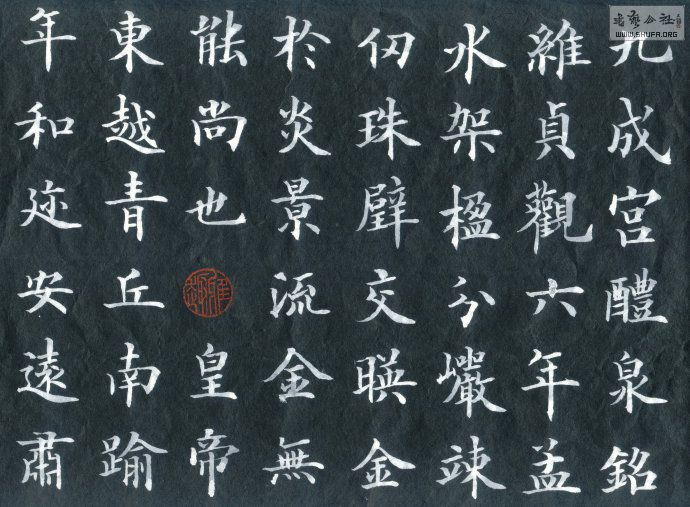 九成宮醴泉銘
維貞觀六年孟
水架楹分巖竦
仞珠璧交暎金
於炎景流金無
能尚也皇帝
東越青丘南踰
年和迩安遠肅
书艺公社
WWW.SHUFA.ORG